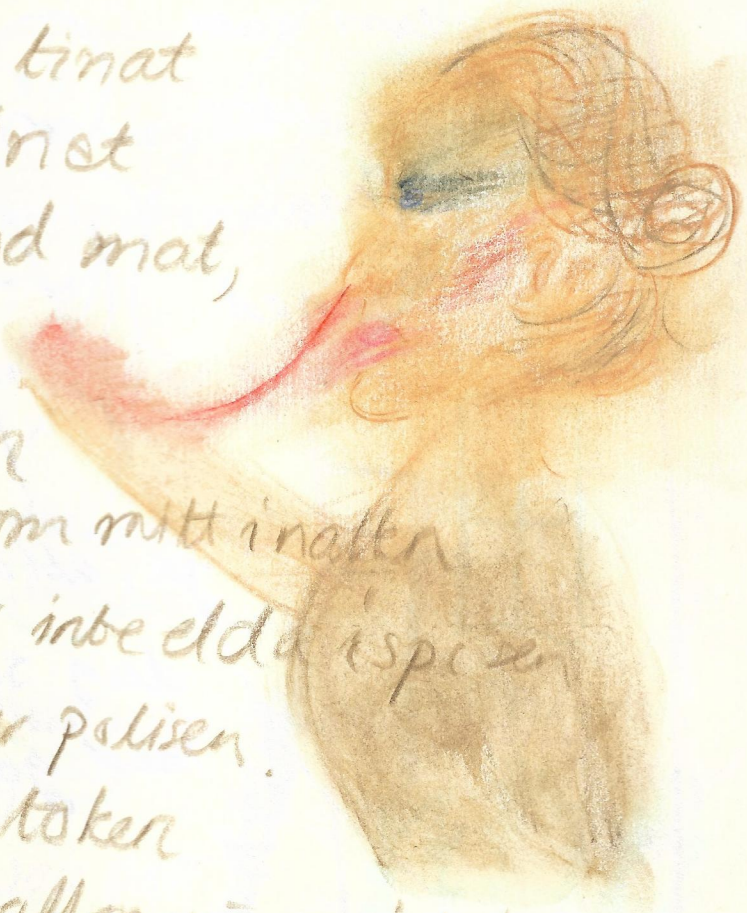 tinat
nat
d mat,
n
m mitt inatten
inte elda i spisen
r polisen.
token